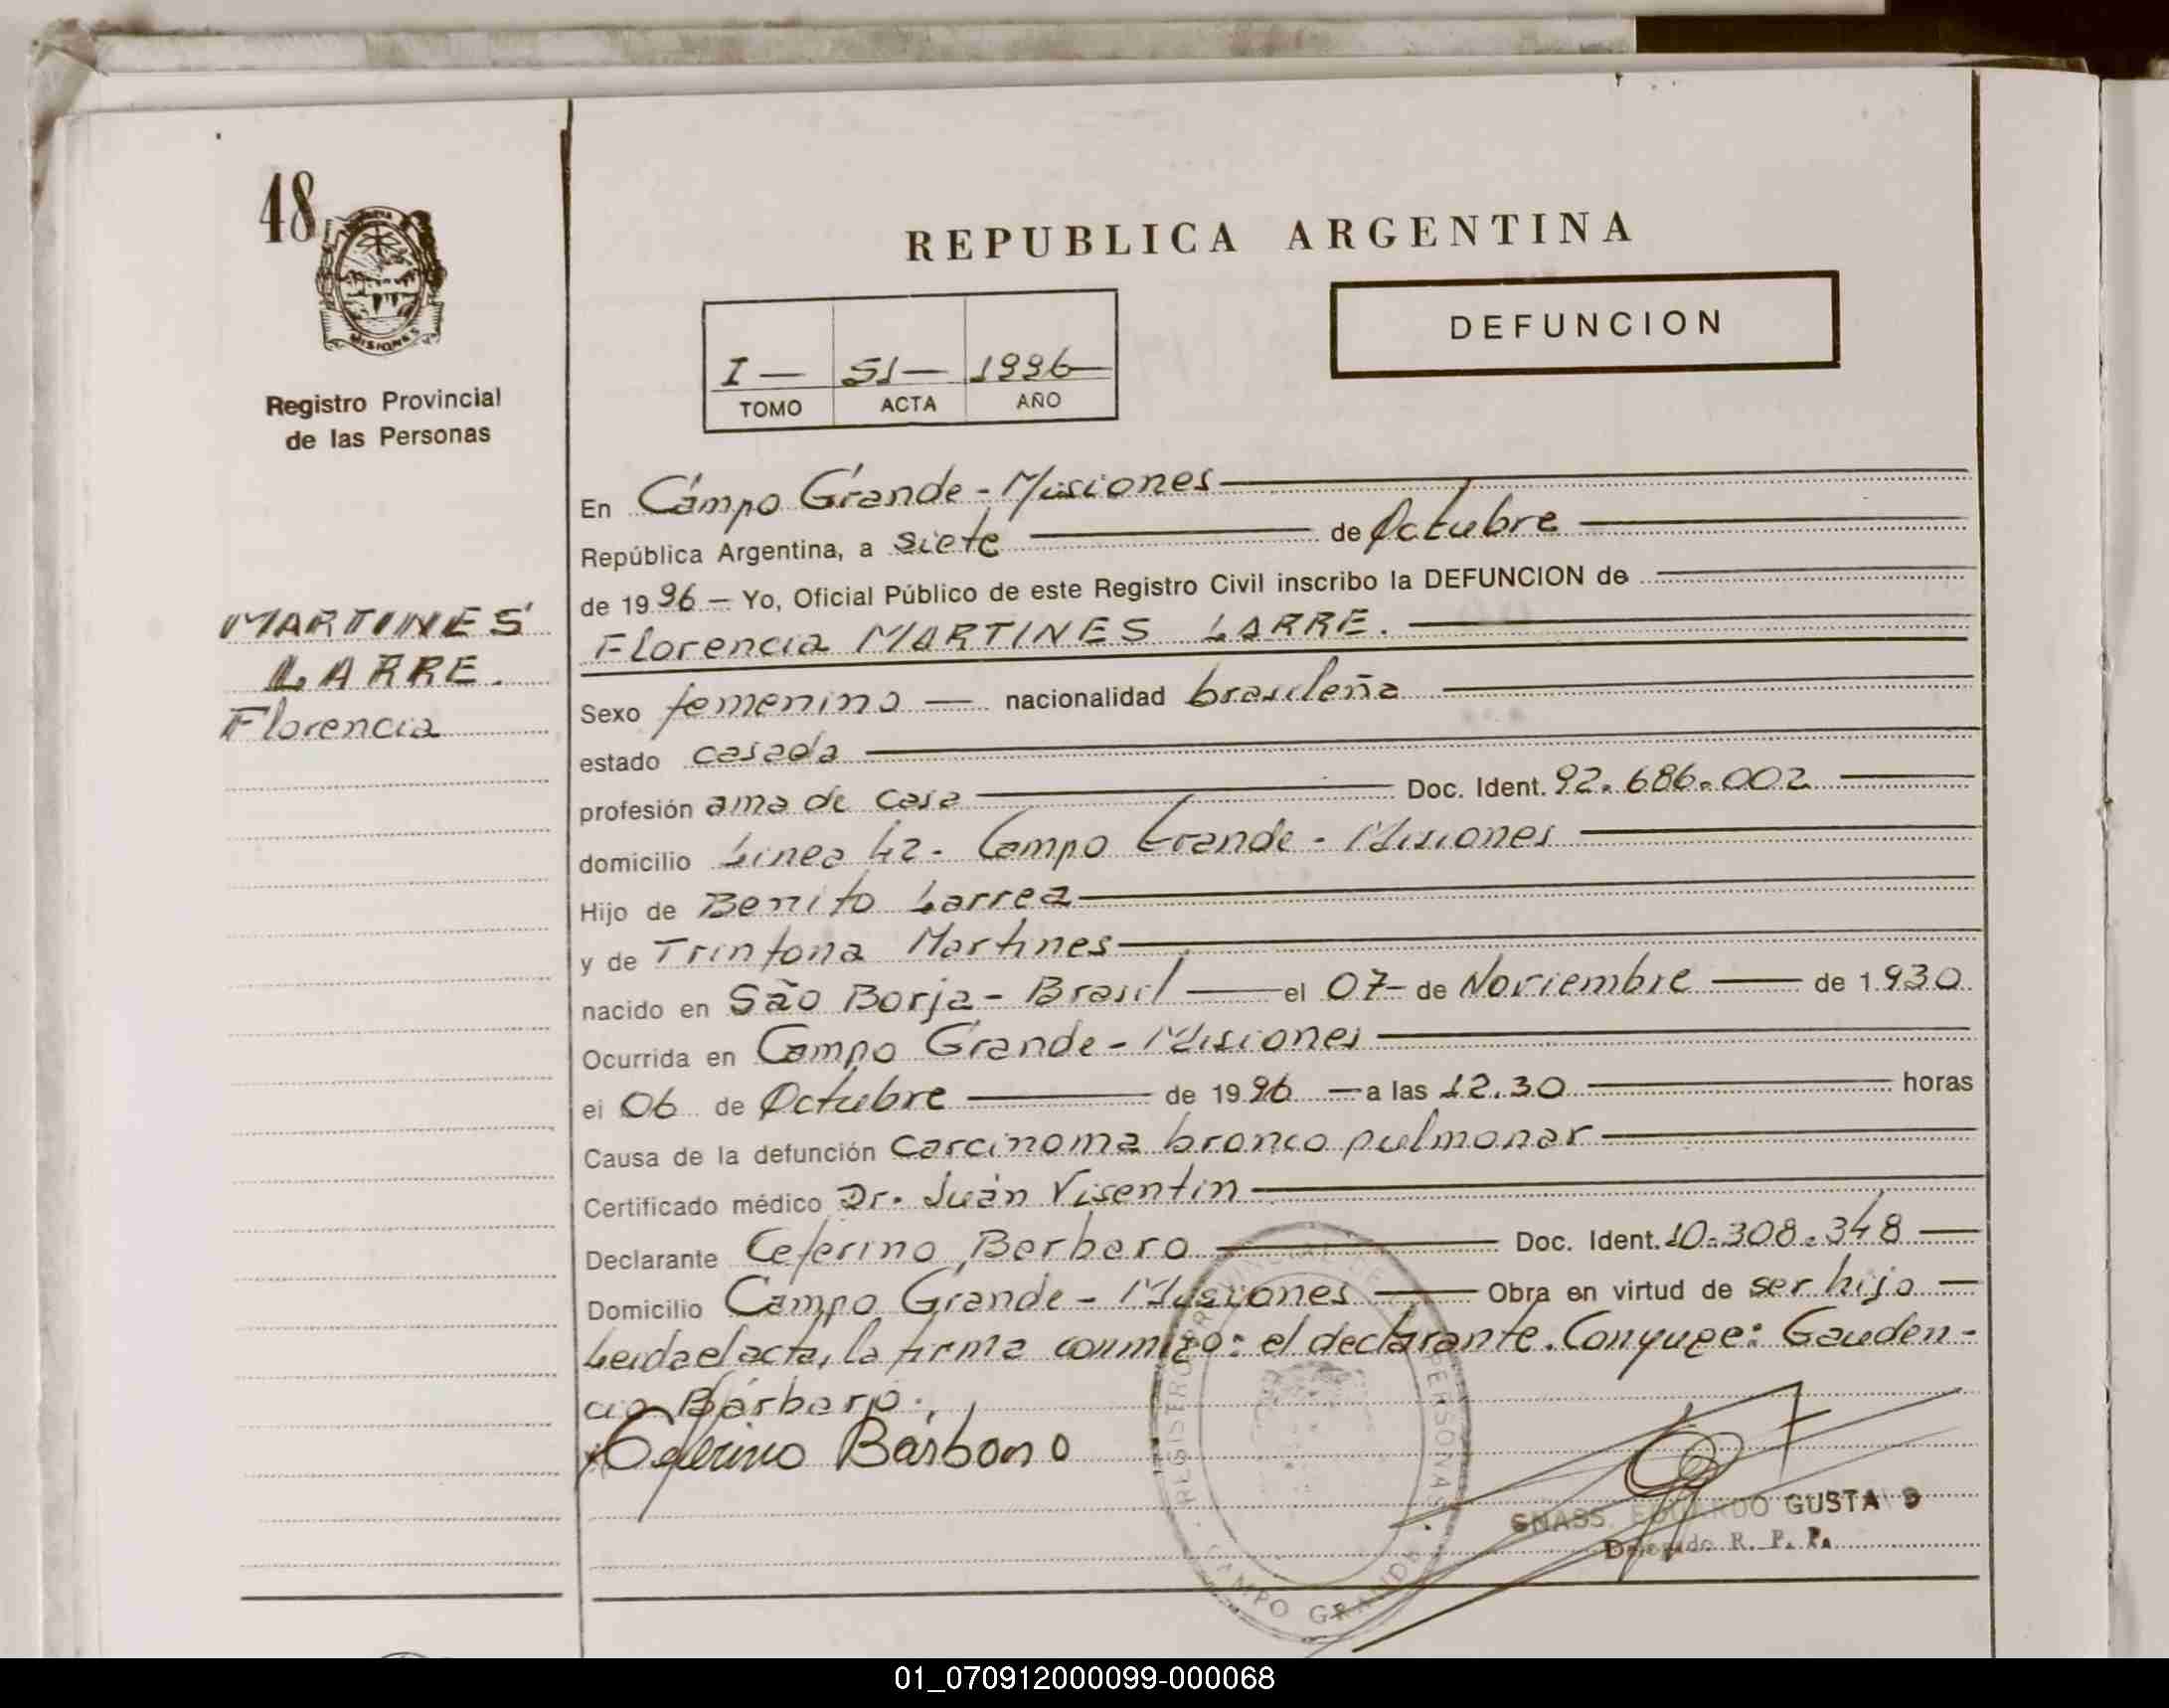 48
MISIONES
Registro Provincial
de las Personas
MARTINES
LARRE.
Florencia
REPUBLICA ARGENTINA
DEFUNCION
I — 51 — 1996 —
TOMO ACTA AÑO
En Campo Grande - Misiones
República Argentina, a siete de Octubre
de 1996 — Yo, Oficial Público de este Registro Civil inscribo la DEFUNCION de
Florencia MARTINES LARRE.
Sexo femenino — nacionalidad brasileña
estado casada
profesión ama de casa Doc. Ident. 92.686.002
domicilio Linea 42 - Campo Grande - Misiones
Hijo de Benito Larrea
y de Trintona Martines
nacido en São Borja - Brasil — el 07 - de Noviembre — de 1930
Ocurrida en Campo Grande - Misiones
el 06 de Octubre — de 1996 — a las 12.30 horas
Causa de la defunción Carcinoma bronco pulmonar
Certificado médico Dr. Juán Visentin
Declarante Ceferino Barbaro Doc. Ident. 10.308.348
Domicilio Campo Grande - Misiones — Obra en virtud de ser hijo —
Leida el acta, la firma conmigo: el declarante. Conyuge: Gauden-
cio Bárbaro.
Ceferino Bárbaro
REGISTRO PROVINCIAL DE PERSONAS
CAMPO GRANDE
GNASS, EDUARDO GUSTAVO
Delegado R. P. P.
01_070912000099-000068